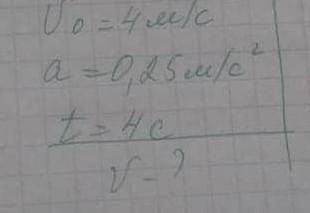 v₀ = 4 м/с
a = 0,25 м/с²
t = 4 с
v - ?